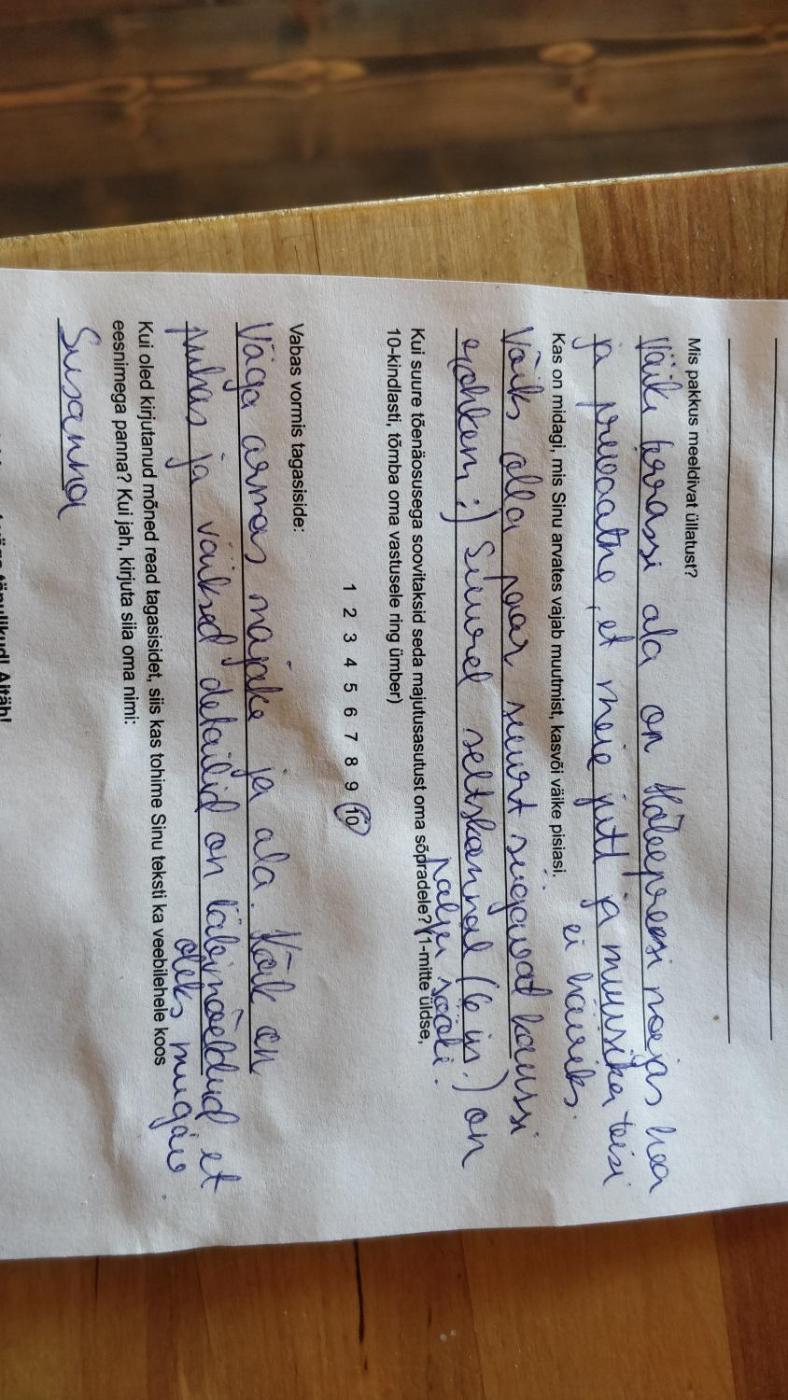 Mis pakkus meeldivat üllatust?
Väike terrassi ala on
hea
ja privaatne, et meie jutt ja muusika teisi
ei häiriks.
Kas on midagi, mis Sinu arvates vajab muutmist, kasvõi väike pisiasi.
Võiks olla paar suurt sügavat kaussi
rohkem :) Suurel seltskonnal (6 in.) on
palju sööki.
Kui suure tõenäosusega soovitaksid seda majutusasutust oma sõpradele? (1-mitte üldse,
10-kindlasti, tõmba oma vastusele ring ümber)
1 2 3 4 5 6 7 8 9 10
Vabas vormis tagasiside:
Väga armas majake ja ala. Kõik on
puhas ja väiksed detailid on läbimõeldud et
oleks mugav
Kui oled kirjutanud mõned read tagasisidet, siis kas tohime Sinu teksti ka veebilehele koos
eesnimega panna? Kui jah, kirjuta siia oma nimi:
Susanna
Aitäh!